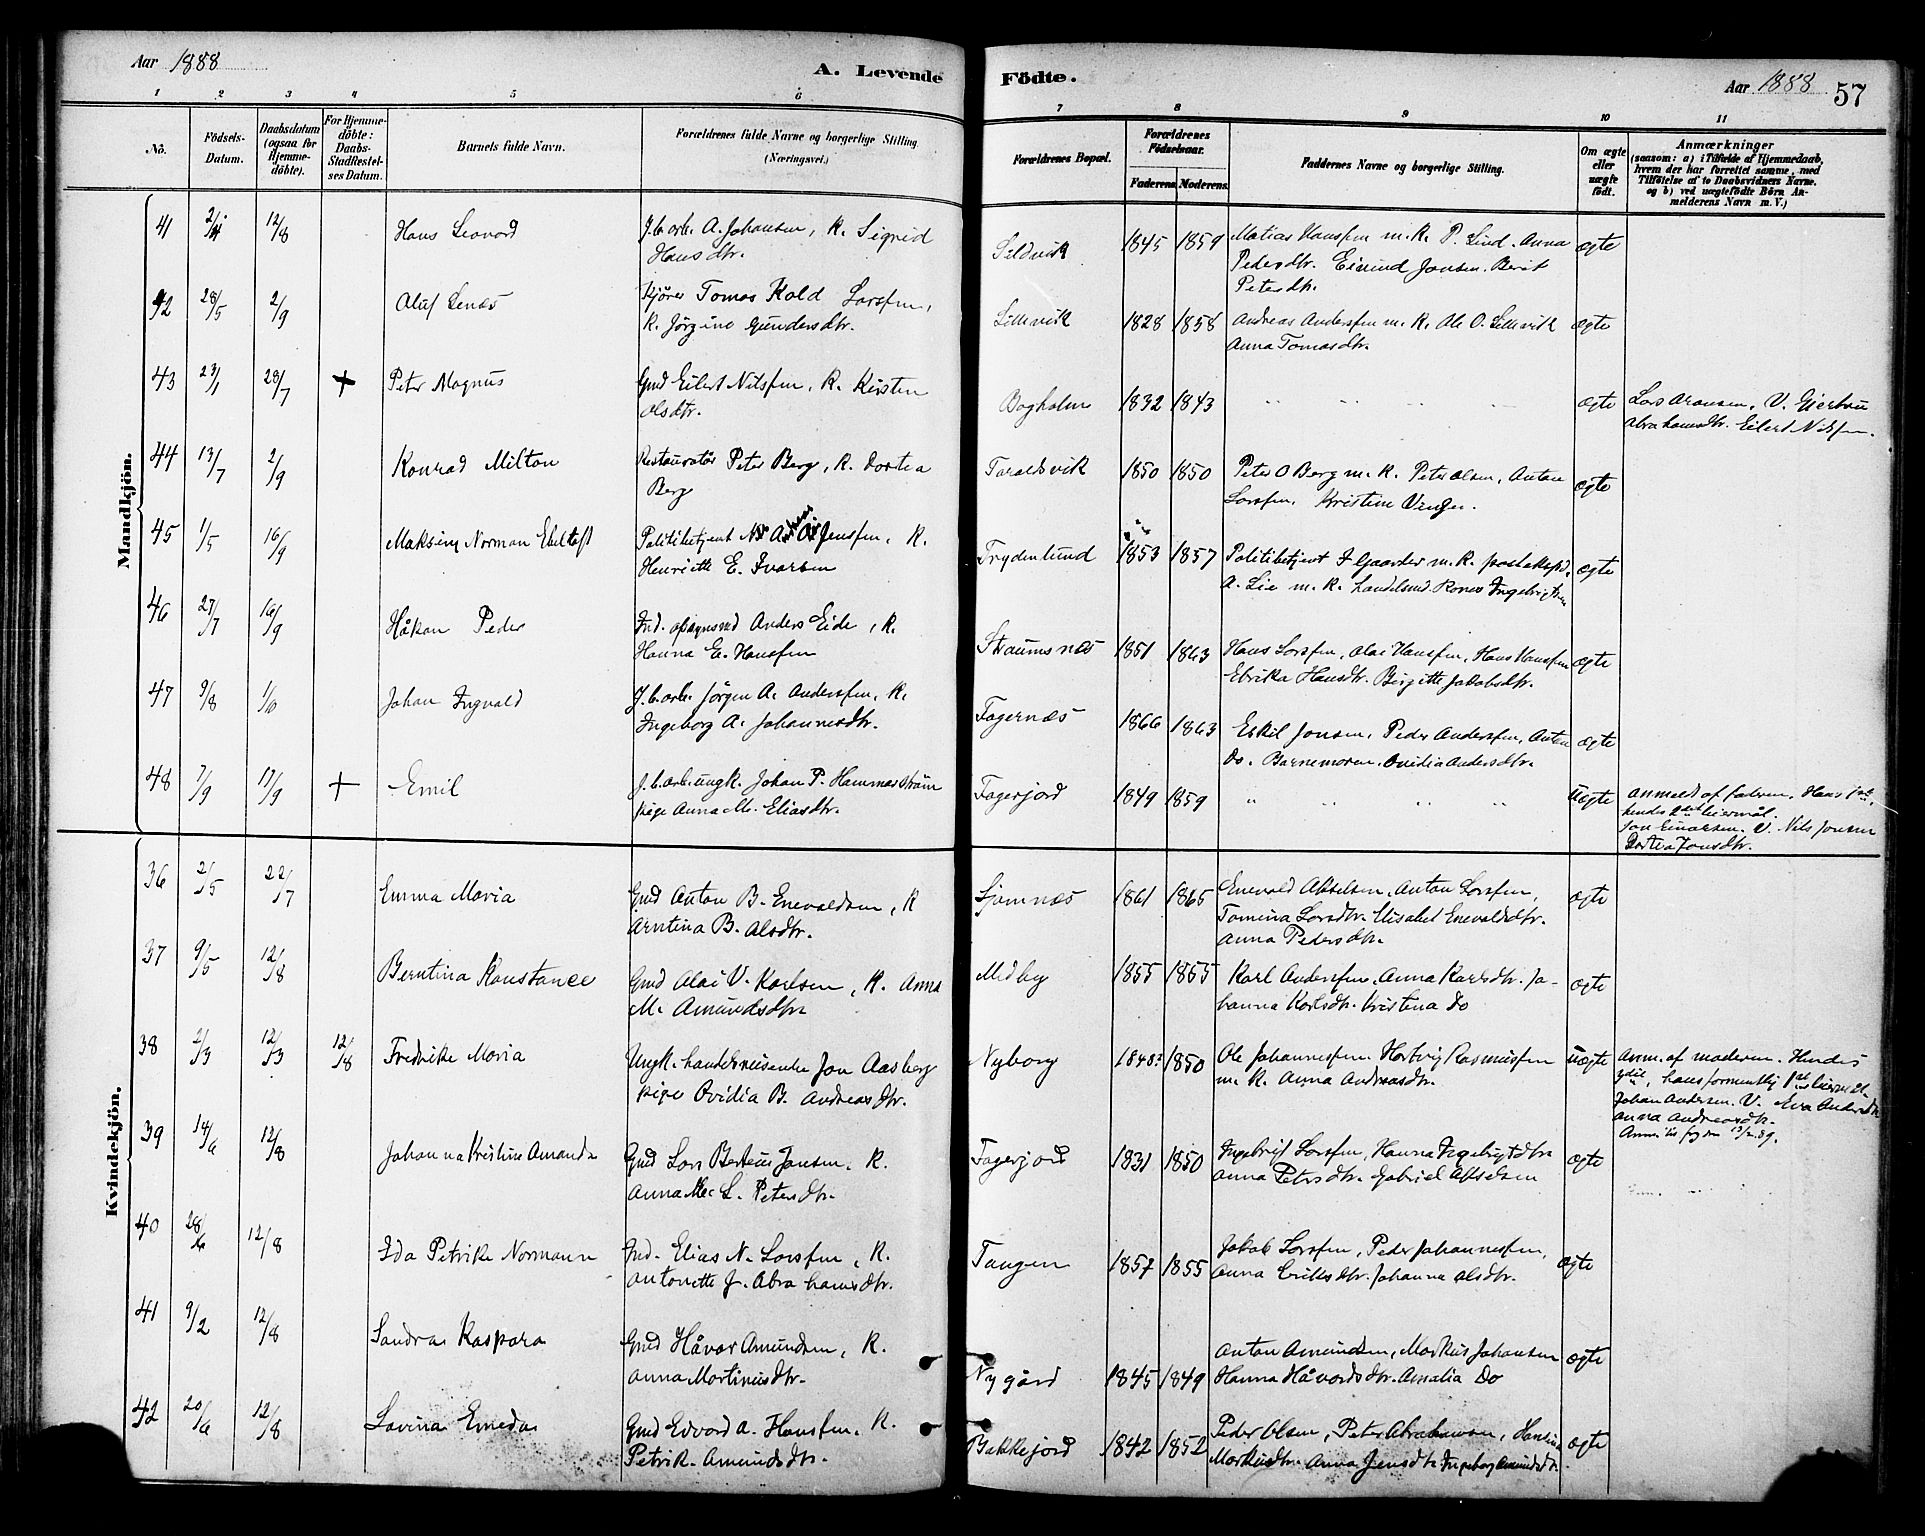 Aar 1888
A. Levende
Födte.
Aar 1888
57
1 2 3 4 5 6 7 8 9 10 11
No.
Födsels-Datum.
Daabsdatum (ogsaa for Hjemme-döbte).
For Hjemme-döbte: Daabs-Stadfæstel-ses Datum.
Barnets fulde Navn.
Forældrenes fulde Navne og borgerlige Stilling (Næringsvei.)
Forældrenes Bopæl.
Forældrenes Födselsaar.
Faderens. Moderens.
Faddernes Navne og borgerlige Stilling.
Om ægte eller uægte födt.
Anmærkninger
(saasom: a) i Tilfælde af Hjemmedaab,
hvem der har forrettet samme, med
Tilföielse af to Daabsvidners Navne.
og b) ved uægtefödte Börn An-
melderens Navn m. V.)
Mandkjön.
41 12/8 Hans Leavord J.b.arb. A. Johansen, K. Sigrid Seldvik 1845 1859 Matias Hanssen m. K. P. Lind. Anna ægte
Hansdtr. Pedersdtr. Eivind Jonsen. Berit
Petersdtr.
42 28/5 2/9 Oluf Lenæs Kjörer Tomas Kold Larssen, Lillevik 1828 1858 Andreas Anderssen m. K. Ole O. Lillevik ægte
K. Jörgine Gundersdtr. Anna Tomasdtr.
43 23/1 28/7 + Peter Magnus Gmd Eilert Nilssen, K. Kirsten Bogholm 1832 1843 " " " ægte Lars Aronsen. V. Gjertru
Olsdtr. Abrahamsdtr. Eilert Nilssen.
44 13/7 2/9 Konrad Milton Restauratör Peter Berg, K. Dortea Taraldsvik 1850 1850 Peter O Berg m. K. Peter Olsen, Anton ægte
Berg Larssen. Kristine Vinger.
45 1/5 16/9 Maksim Norman Ebeltoft Politibetjent Jenssen, K. Frydenlund 1853 1857 Politibetjent F Gaarder m. K. postekspd. ægte
Henriette E. Ivarsen A. Lie m. K. handelsmd Roness Ingebrigtsen
46 27/7 16/9 Håkon Peder Ind. opsynsmd Anders Eide, K. Straumsnes 1851 1863 Hans Larssen, Olai Hanssen, Hans Hanssen ægte
Hanna E. Hanssen Ebrika Hansdtr. Birgitte Jakobsdtr.
47 9/8 Johan Ingvald J.b.arb. Jörgen A. Anderssen, K. Fagernæs 1866 1863 Eskil Jonsen, Peder Anderssen, Anton ægte
Ingeborg A. Johannesdtr. Do. Barnemoren. Ovidia Andersdtr.
48 7/9 17/9 + Emil J.b.arb. ungk. Johan P. Hammerström Fagerjord 1849 1859 " " " " uægte Anmeldt af faderen. Hans 1ste,
pige Anna M. Eliasdtr. hendes 2det leiermål.
Jon Einarsen. V. Nils Jonsen
Dortea Jonsdtr.
Kvindekjön.
36 2/5 22/7 Emma Maria Gmd Anton B. Enevaldsen, K Sjomnæs 1861 1865 Enevald Akselsen, Anton Larssen, ægte
Arntina B. Olsdtr. Tomina Larsdtr. Elisabet Enevaldsdtr.
Anna Pedersdtr.
37 9/5 12/8 Berntina Konstance Gmd Olai V. Karlsen, K. Anna Medby 1855 1855 Karl Anderssen, Anna Karlsdtr. Jo- ægte
M. Amundsdtr hanna Karlsdtr. Kristina Do
38 2/3 12/3 12/8 Fredrike Maria Ungk. handelsreisende Jon Aasberg Nyborg 1848? 1850 Ole Johannessen. Hartvig Rasmussen uægte Anm. af moderen. Hendes
pige Ovidia B. Andreasdtr. m. K. Anna Andreasdtr. 1ste leiermål.
Johan Andersen. V. Eva Andersdtr
Anna Andreasdtr.
39 14/6 12/8 Johanna Kristine Amanda Gmd Lars Berteus Jansen. K. Fagerjord 1831 1850 Ingebrigt Larssen, Hanna Ingebrigtdtr ægte
Anna L. Petersdtr. Anna Petersdtr. Gabriel Akselsen
40 28/6 12/8 Ida Petrike Normann Gmd. Elias N. Larssen, K. Tangen 1857 1855 Jakob Larssen, Peder Johannessen, ægte
Antonette J. Abrahamsdtr. Anna Eriksdtr. Johanna Olsdtr.
41 9/2 12/8 Sandra Kaspara Gmd Håvar Amundsen, K. Nygård 1845 1849 Anton Amundsen, Markus Johansen ægte
Anna Martinusdtr. Hanna Håvardsdtr. Amalia Do
42 20/6 12/8 Lavina Emeda Gmd Edvard A. Hanssen, K. Bakkejord 1842 1852 Peder Olsen, Peter Abrahamsen, Hansina ægte
Petrik. Amundsdtr. Markusdtr. Anna Jensdtr Ingeborg Amundsdtr.